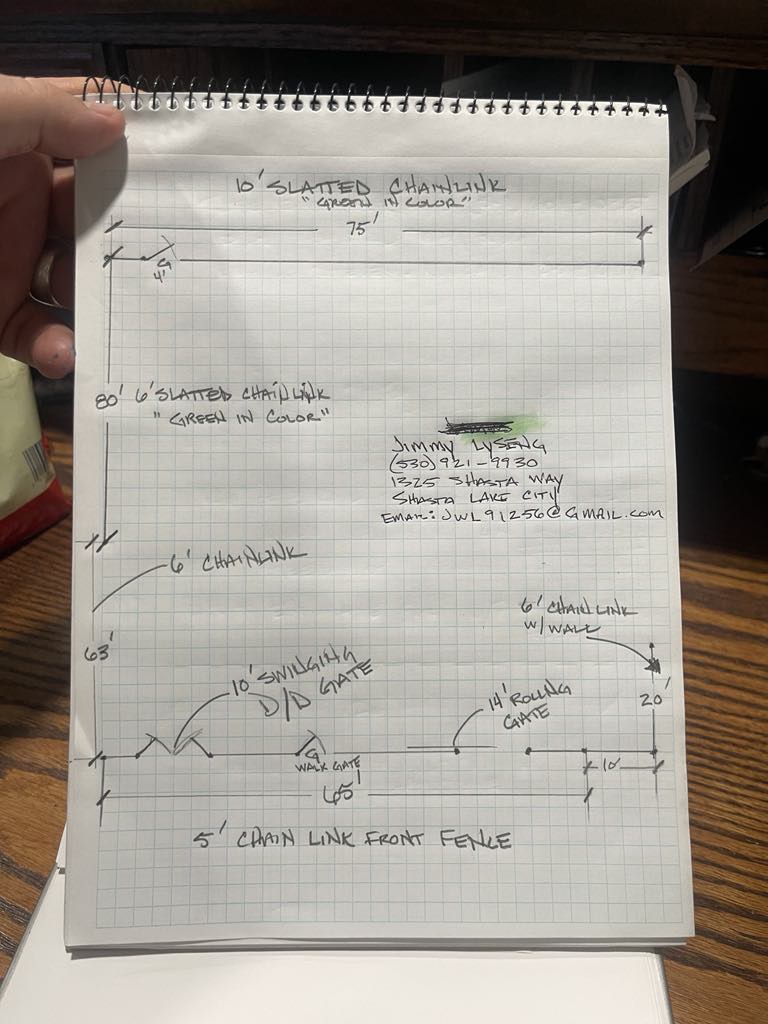 10' SLATTED CHAINLINK
"GREEN IN COLOR"
75'
G
4'
80' 6' SLATTED CHAINLINK
"GREEN IN COLOR"
Jimmy LYSENG
(530) 921-9930
1325 SHASTA WAY
SHASTA LAKE CITY
EMAIL: JWL91256@GMAIL.com
6' CHAINLINK
6' CHAIN LINK
W/WALL
63'
10' SWINGING
D/D GATE
14' ROLLING
GATE
20'
G
WALK GATE
10'
65'
5' CHAIN LINK FRONT FENCE